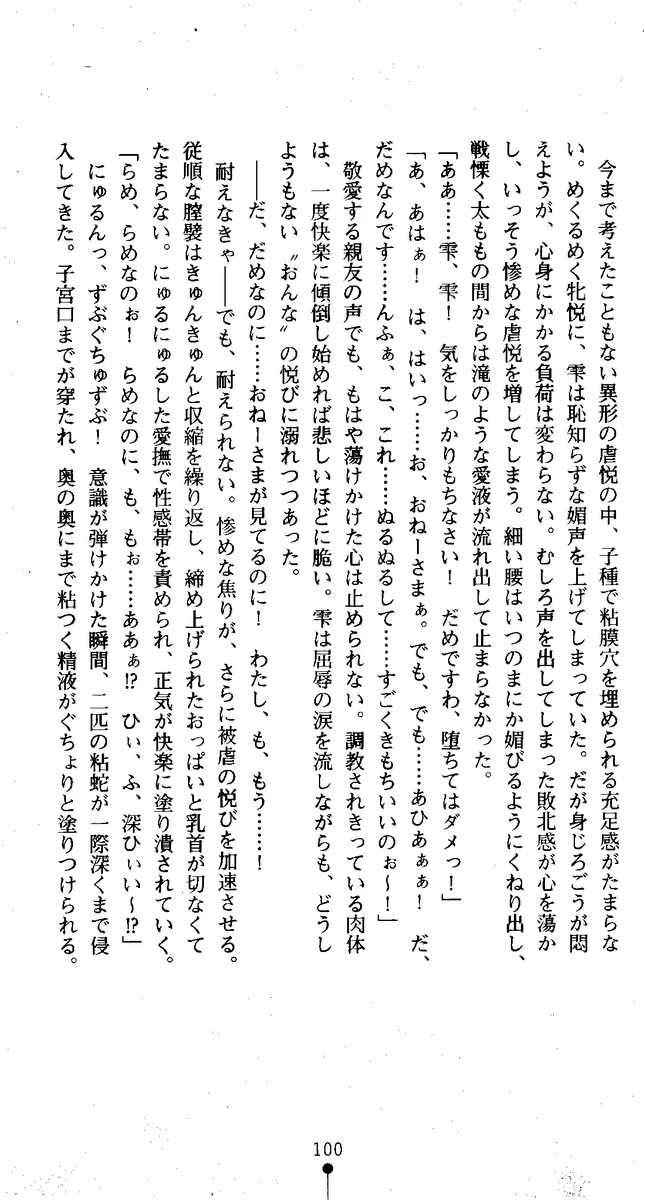 今まで考えたこともない異形の虐悦の中、子種で粘膜穴を埋められる充足感がたまらな
い。めくるめく牝悦に、雫は恥知らずな媚声を上げてしまっていた。だが身じろごうが悶
えようが、心身にかかる負荷は変わらない。むしろ声を出してしまった敗北感が心を蕩か
し、いっそう惨めな虐悦を増してしまう。細い腰はいつのまにか媚びるようにくねり出し、
戦慄く太ももの間からは滝のような愛液が流れ出して止まらなかった。
「ああ……雫、雫！　気をしっかりもちなさい！　だめですわ、堕ちてはダメっ！」
「あ、あはぁ！　は、はいっ……お、おねーさまぁ。でも、でも……あひあぁぁ！　だ、
だめなんです……んふぁ、こ、これ……ぬるぬるして……すごくきもちいいのぉ～！」
敬愛する親友の声でも、もはや蕩けかけた心は止められない。調教されきっている肉体
は、一度快楽に傾倒し始めれば悲しいほどに脆い。雫は屈辱の涙を流しながらも、どうし
ようもない〝おんな〟の悦びに溺れつつあった。
――だ、だめなのに……おねーさまが見てるのに！　わたし、も、もう……！
耐えなきゃ――でも、耐えられない。惨めな焦りが、さらに被虐の悦びを加速させる。
従順な膣襞はきゅんきゅんと収縮を繰り返し、締め上げられたおっぱいと乳首が切なくて
たまらない。にゅるにゅるした愛撫で性感帯を責められ、正気が快楽に塗り潰されていく。
「らめ、らめなのぉ！　らめなのに、も、もぉ……ああぁ!?　ひぃ、ふ、深ひぃい～!?」
にゅるんっ、ずぶぐちゅずぶ！　意識が弾けかけた瞬間、二匹の粘蛇が一際深くまで侵
入してきた。子宮口までが穿たれ、奥の奥にまで粘つく精液がぐちょりと塗りつけられる。
100